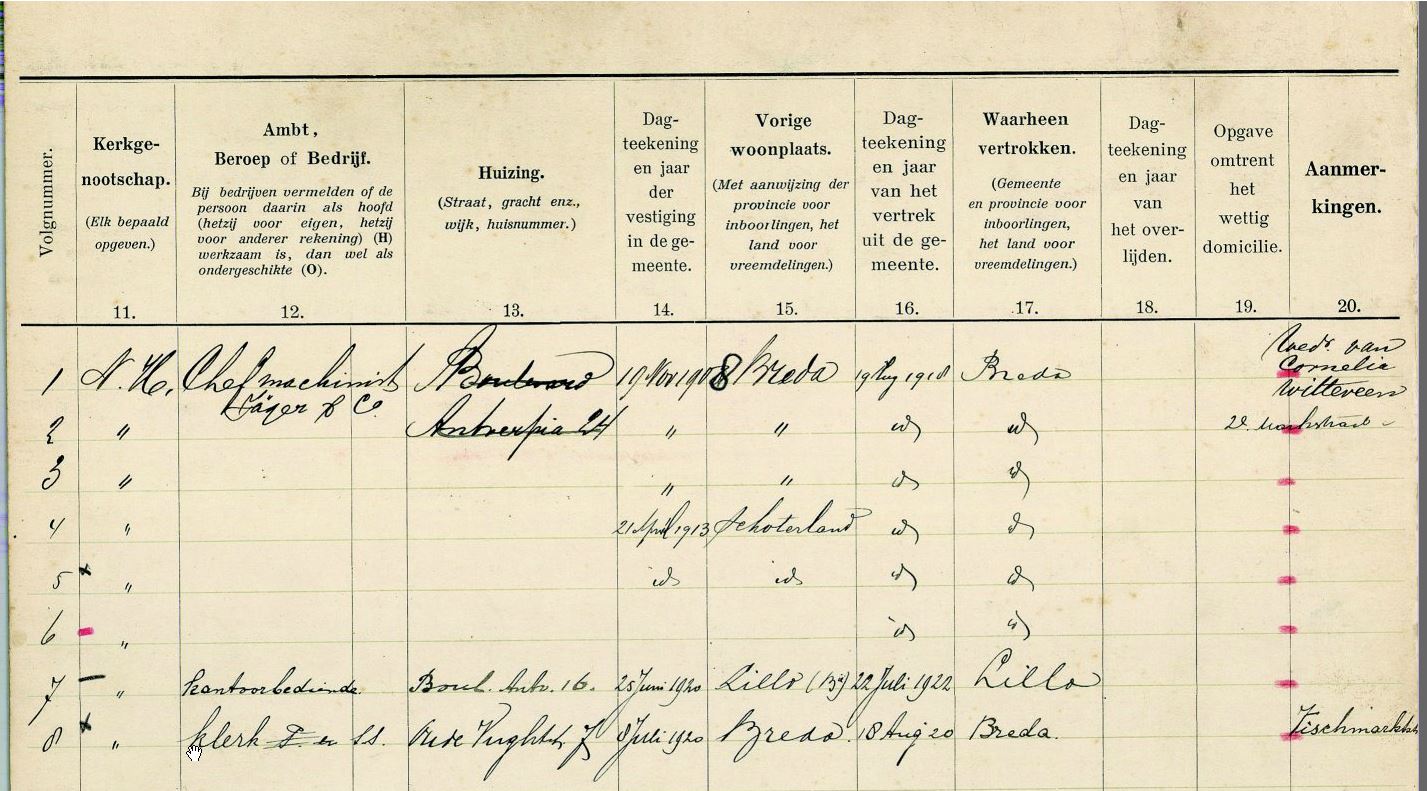 Volgnummer.
Kerkge-
nootschap.
(Elk bepaald
opgeven.)
11.
Ambt,
Beroep of Bedrijf.
Bij bedrijven vermelden of de
persoon daarin als hoofd
(hetzij voor eigen, hetzij
voor anderer rekening) (H)
werkzaam is, dan wel als
ondergeschikte (O).
12.
Huizing.
(Straat, gracht enz.,
wijk, huisnummer.)
13.
Dag-
teekening
en jaar
der
vestiging
in de ge-
meente.
14.
Vorige
woonplaats.
(Met aanwijzing der
provincie voor
inboorlingen, het
land voor
vreemdelingen.)
15.
Dag-
teekening
en jaar
van het
vertrek
uit de ge-
meente.
16.
Waarheen
vertrokken.
(Gemeente
en provincie voor
inboorlingen,
het land voor
vreemdelingen.)
17.
Dag-
teekening
en jaar
van
het over-
lijden.
18.
Opgave
omtrent
het
wettig
domicilie.
19.
Aanmer-
kingen.
20.
1 N. H. Chef machinist Boulevard 19 Nov 1908 Breda 19 Aug 1918 Breda Wedr. van
Cornelia
Witteveen
Jäger & Co.
2 " Antverpia 24 " " id id
3 " " " id id
4 " 21 April 1913 Schoterland id id
5 " id id id id
6 " id id
7 " kantoorbediende Boul. Antv. 16. 25 Juni 1920 Lillo 22 Juli 1922 Lillo
8 " klerk T. en S.S. Oude Vught 8 Juli 1920 Breda. 18 Aug 20 Breda. Vischmarktstr